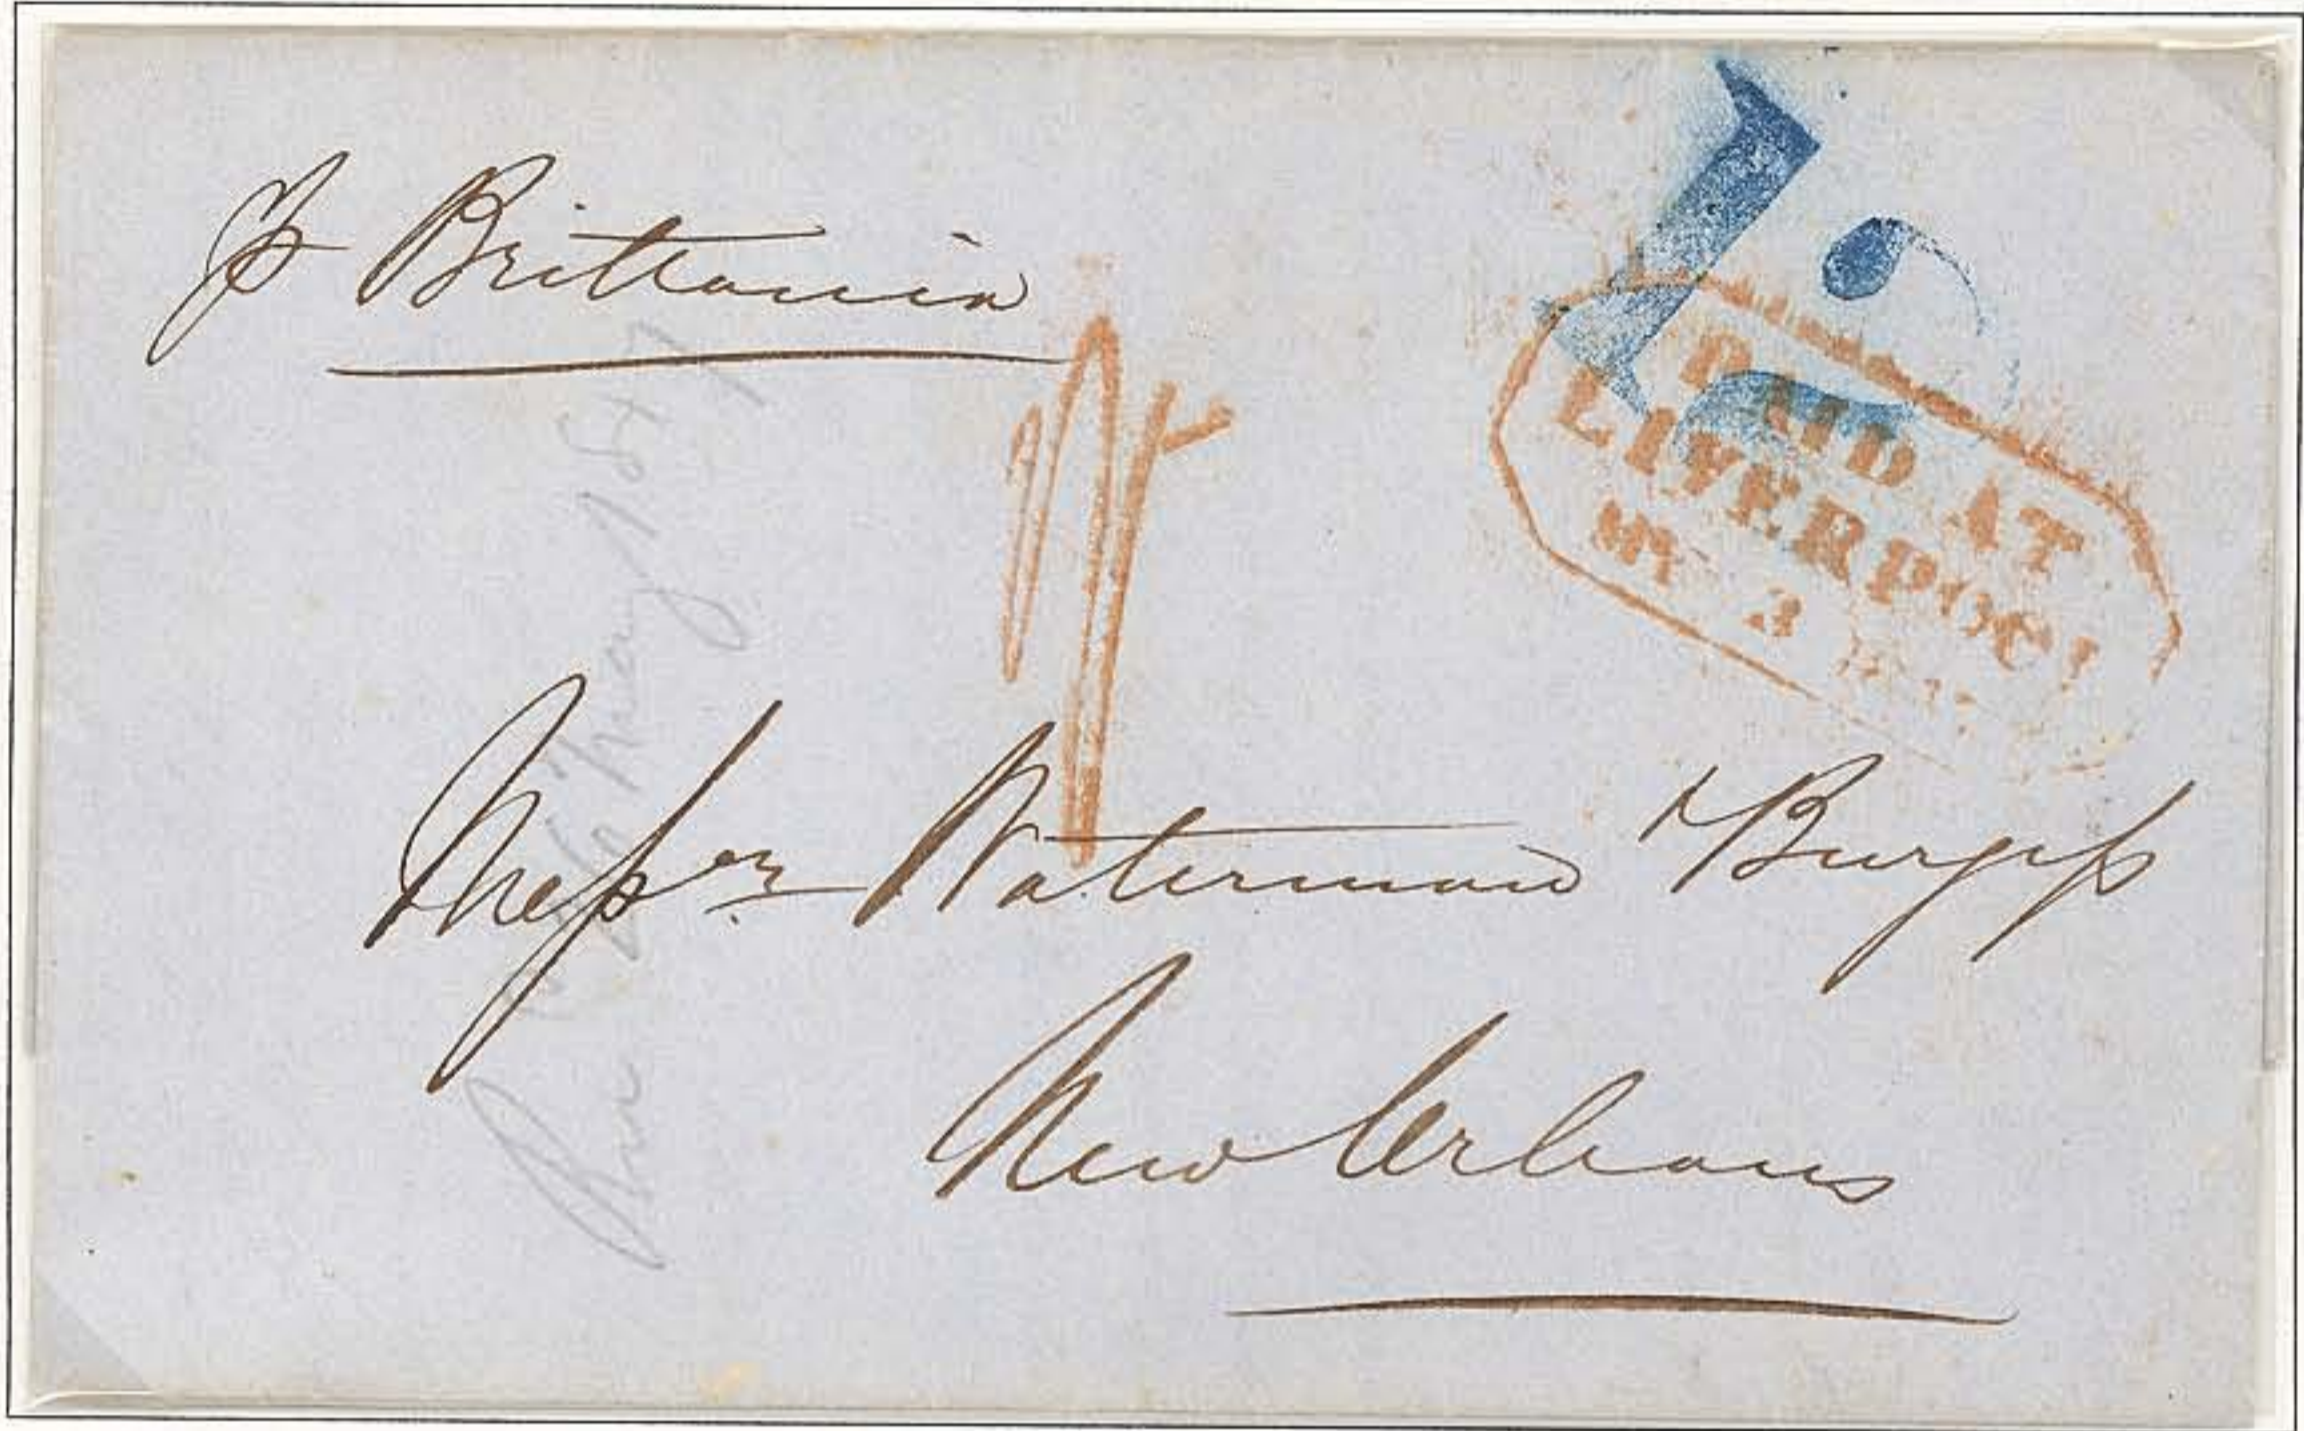 p Brittania
12
PAID AT
LIVERPOOL
MY 3
Messrs Waterman & Burgess
New Orleans
May 1847